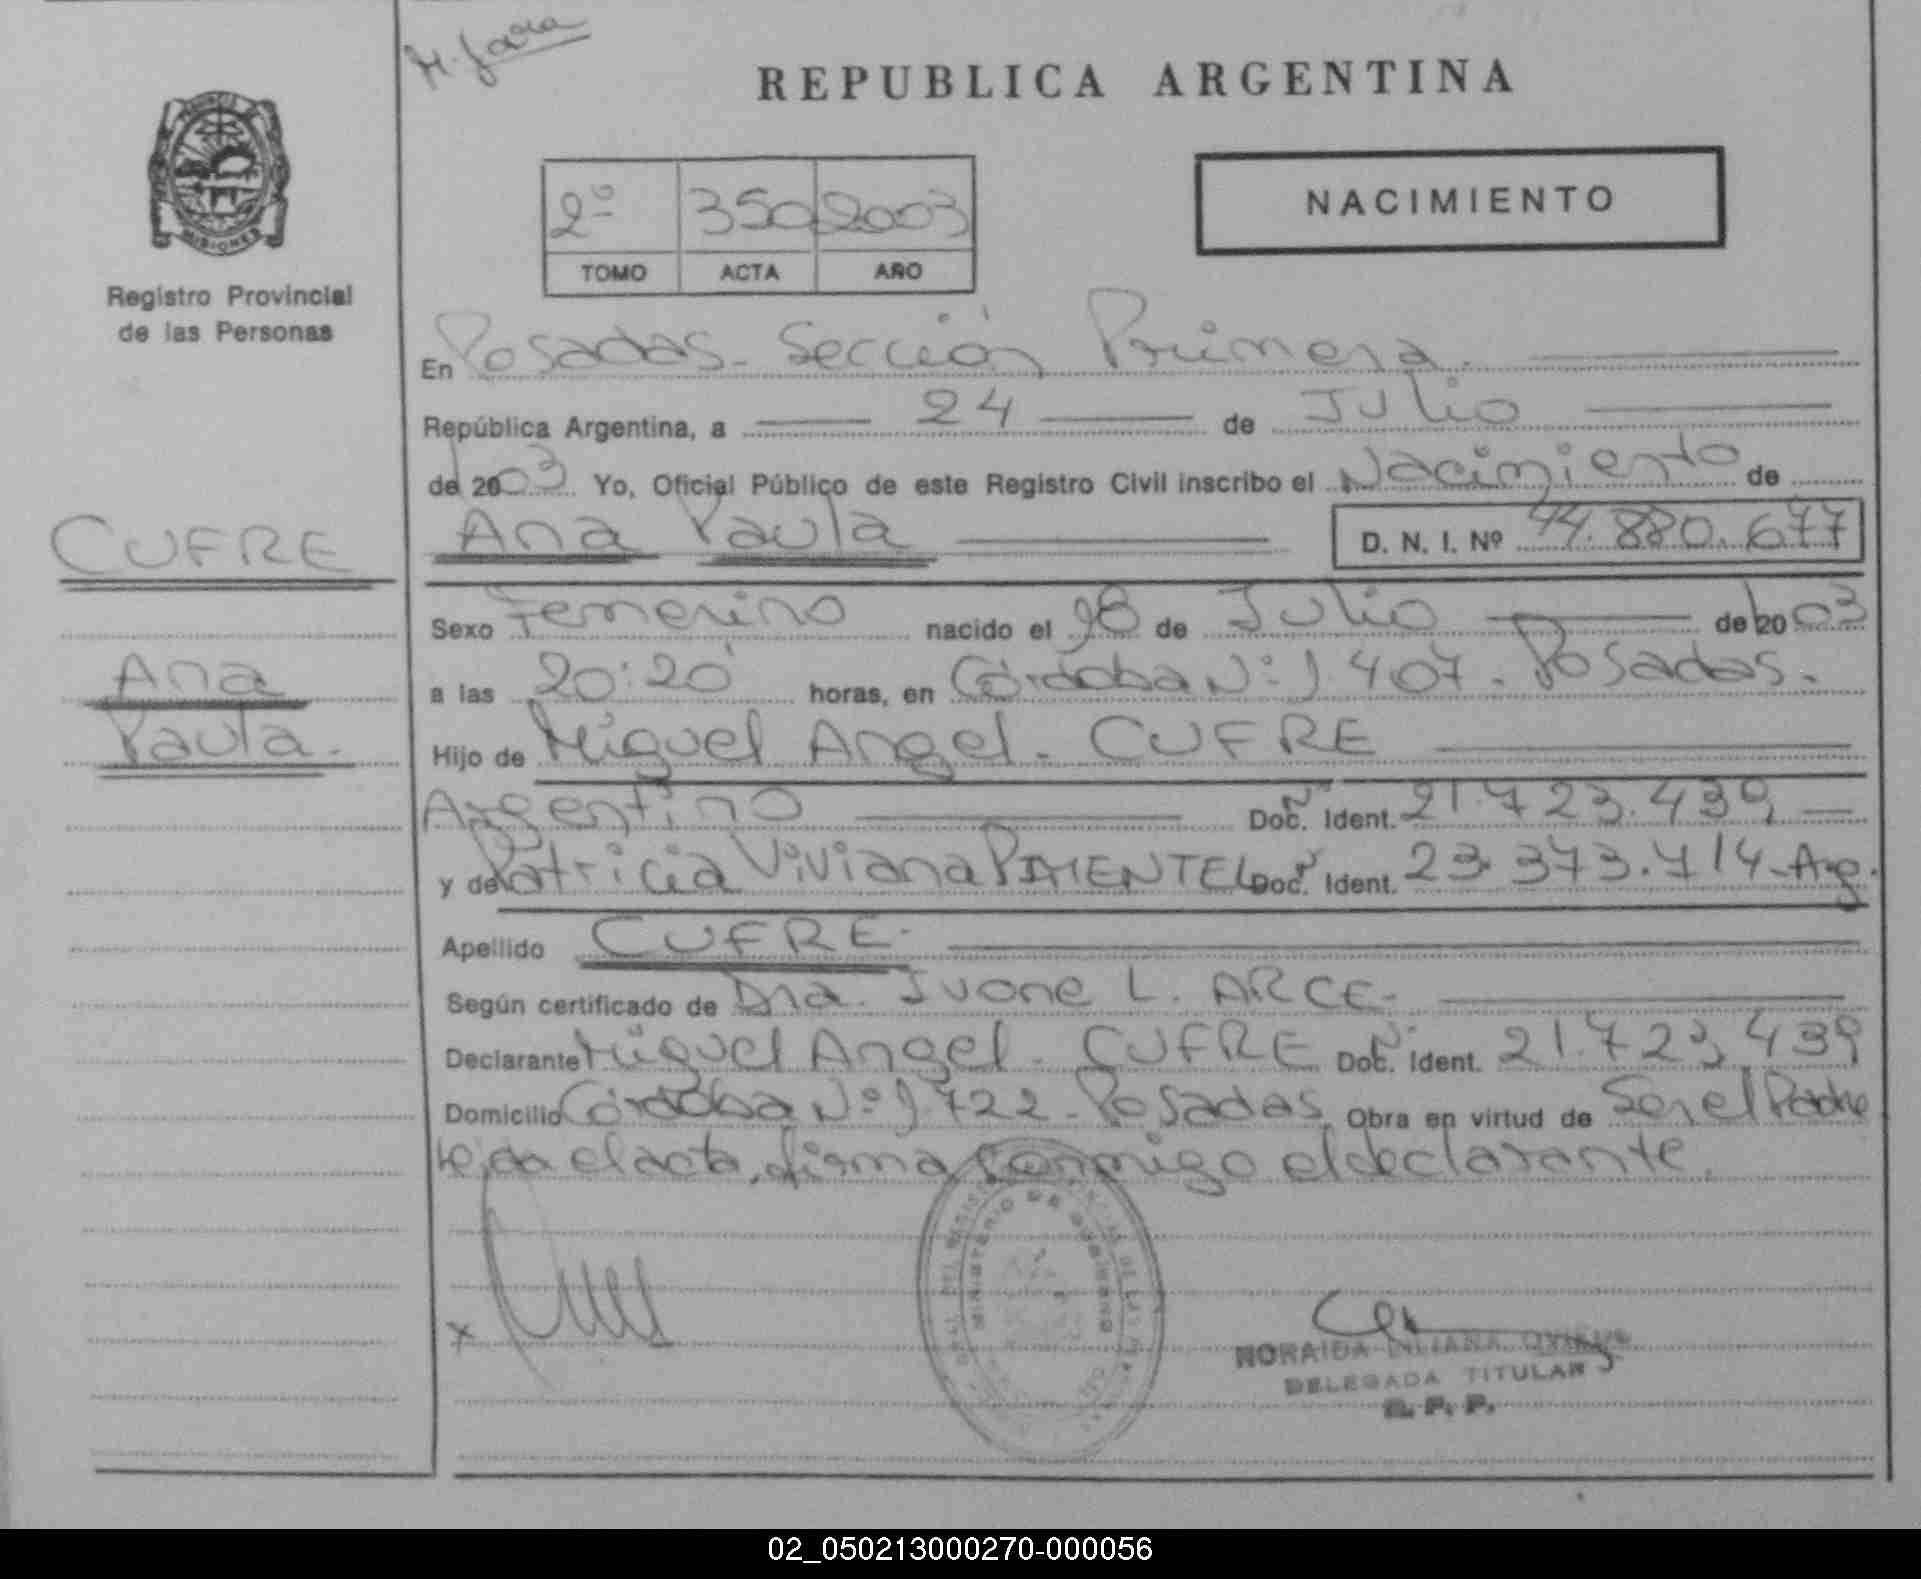 H. Jara
REPUBLICA ARGENTINA
MISIONES
Registro Provincial
de las Personas
2º 350 2003
TOMO ACTA AÑO
NACIMIENTO
En Posadas - Sección Primera.
República Argentina, a 24 de Julio
de 2003 Yo, Oficial Público de este Registro Civil inscribo el Nacimiento de
CUFRE
Ana Paula D. N. I. Nº 44.880.677
Sexo Femenino nacido el 18 de Julio de 2003
Ana
Paula.
a las 20:20 horas, en Córdoba Nº 1.407 - Posadas.
Hijo de Miguel Angel - CUFRE
Argentino Nº Doc. Ident. 21.723.439
y de Patricia Viviana PIMENTEL Nº Doc. Ident. 23.373.714 - Arg.
Apellido CUFRE.
Según certificado de Dra. Ivone L. ARCE -
Declarante Miguel Angel - CUFRE Nº Doc. Ident. 21.723.439
Domicilio Córdoba Nº 1.722 - Posadas Obra en virtud de Ser el Padre
leída el acta, firma conmigo el declarante.
MINISTERIO DE GOBIERNO
x
NORAIDA LILIANA
DELEGADA TITULAR
R. P. P.
02_050213000270-000056